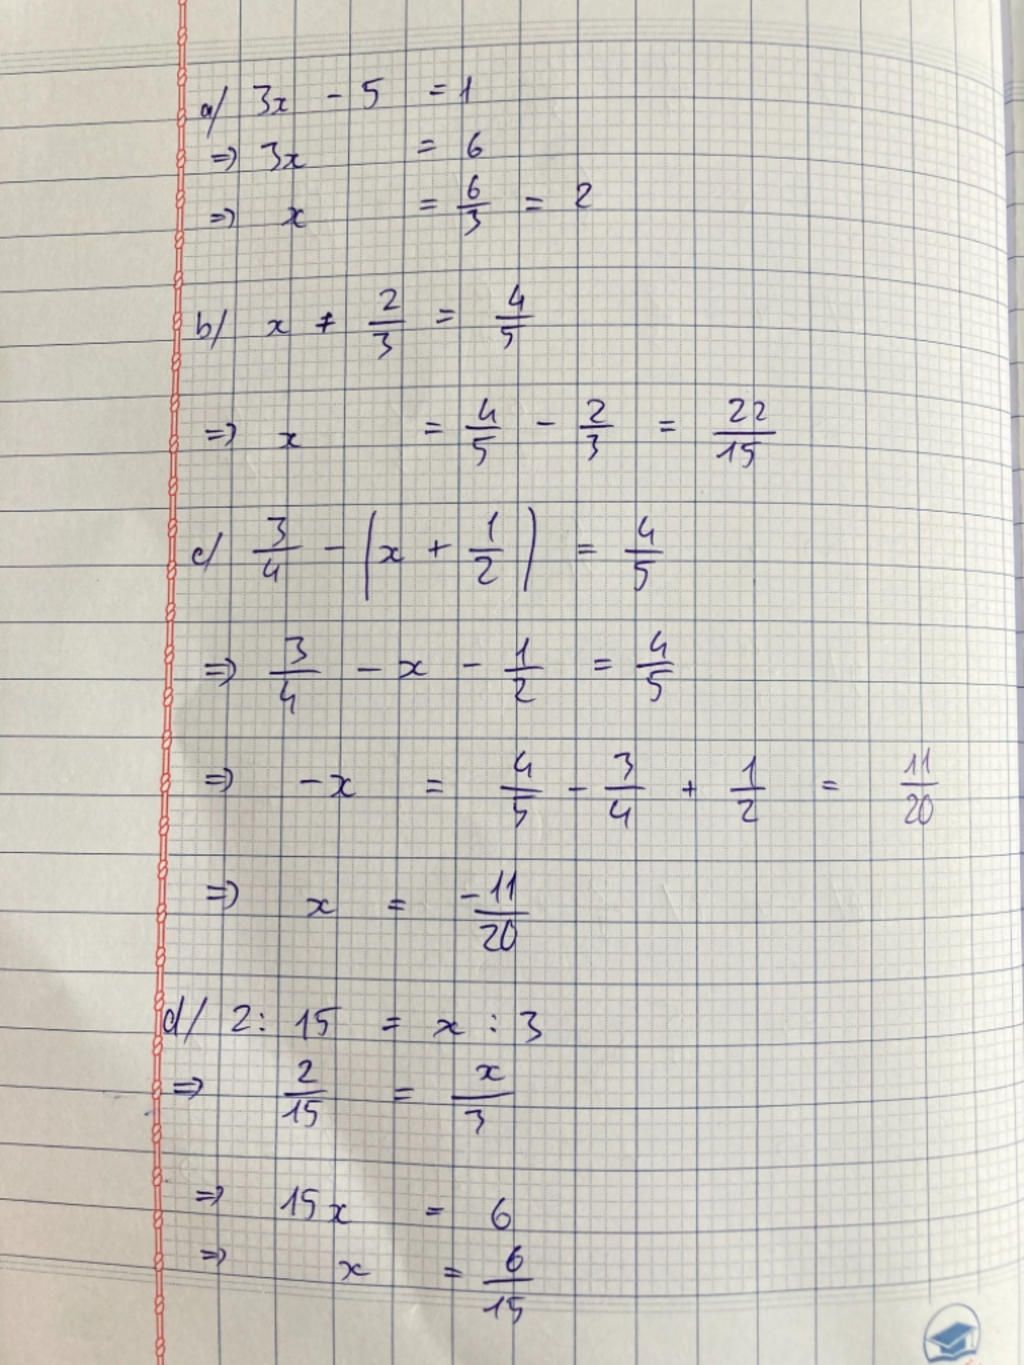 a/ 3x - 5 = 1
=> 3x = 6
=> x = 6/3 = 2
b/ x + 2/3 = 4/5
=> x = 4/5 - 2/3 = 22/15
c/ 3/4 - (x + 1/2) = 4/5
=> 3/4 - x - 1/2 = 4/5
=> -x = 4/5 - 3/4 + 1/2 = 11/20
=> x = -11/20
d/ 2 : 15 = x : 3
=> 2/15 = x/3
=> 15x = 6
=> x = 6/15